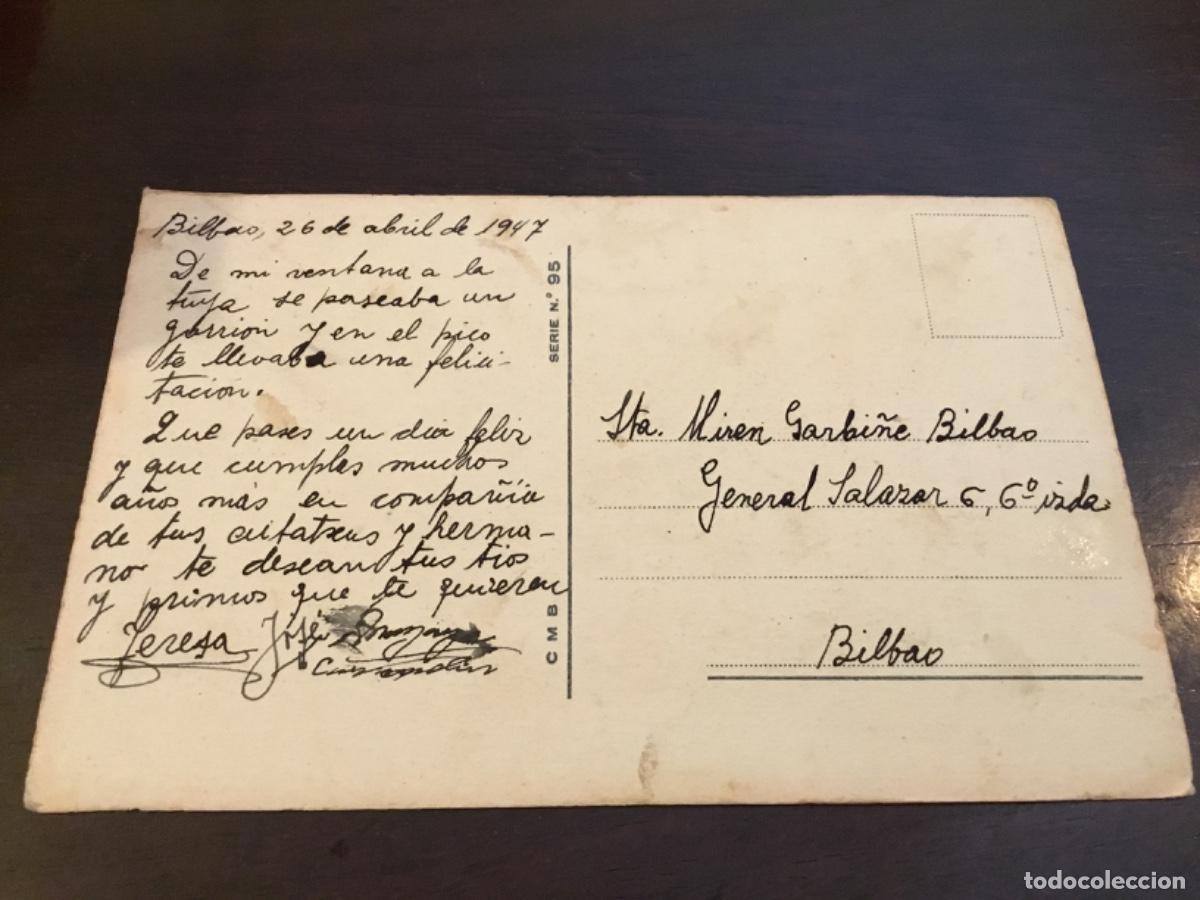 Bilbao, 26 de abril de 1947
De mi ventana a la
tuya se paseaba un
gorrión y en el pico
te llevaba una felici-
tación.
Que pases un dia feliz
y que cumplas muchos
años más en compañia
de tus aitatxus y herma-
no te desean tus tios
y primos que te quieren
Teresa José
SERIE N.º 95
C M B
Sta. Miren Garbiñe Bilbao
General Salazar 6, 6º izda.
Bilbao
todocoleccion